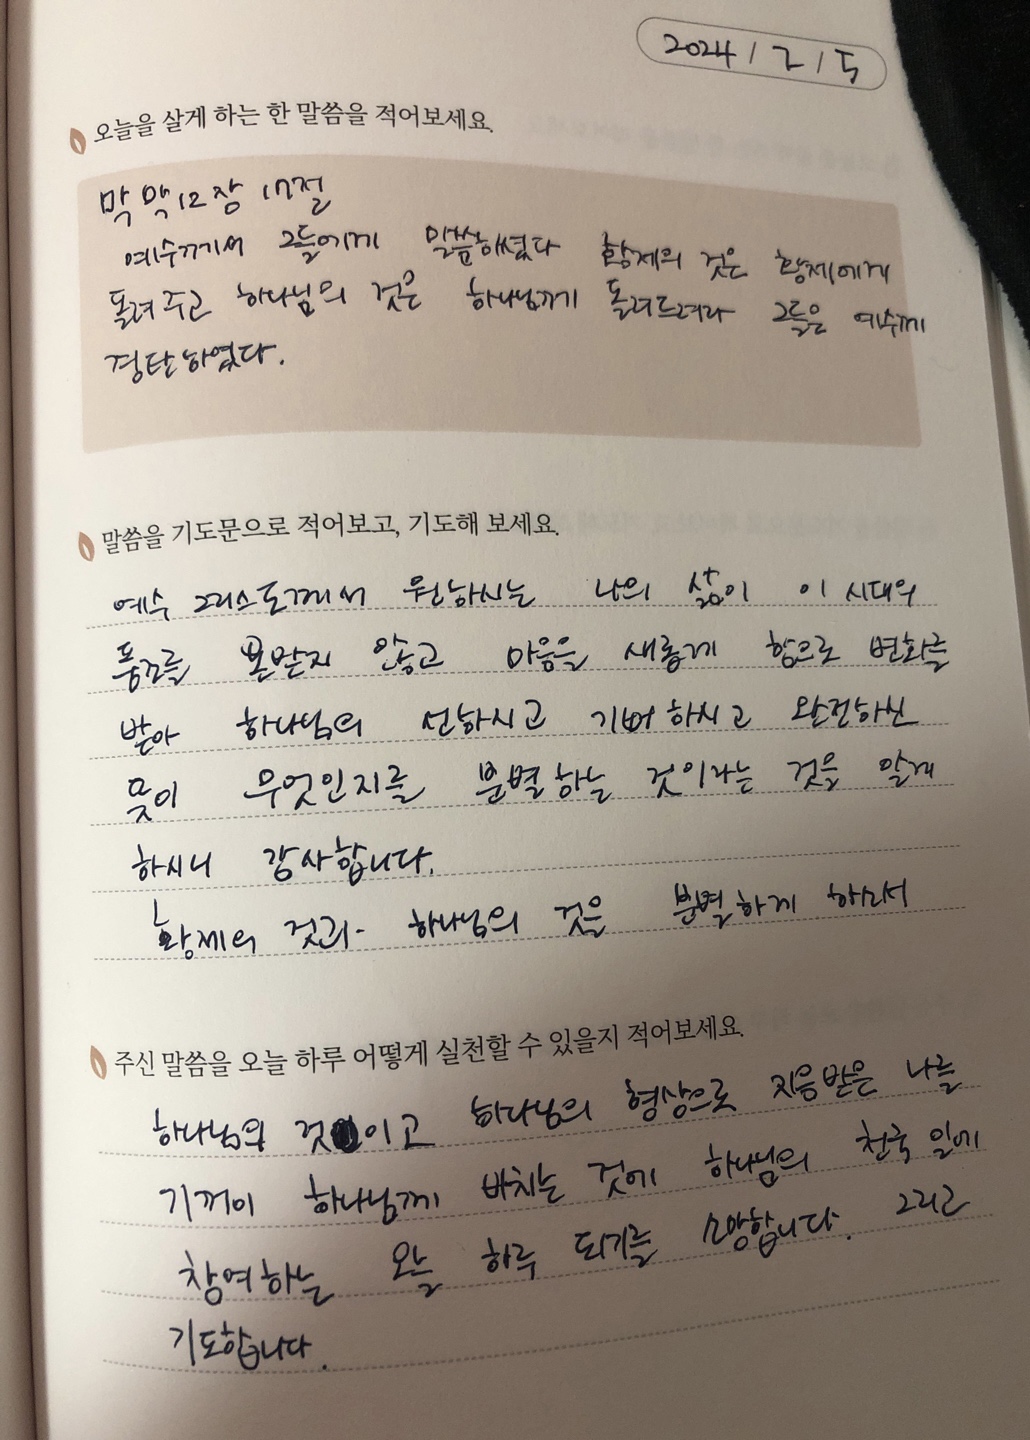 2024 / 2 / 5
오늘을 살게 하는 한 말씀을 적어보세요.
막 막12장 17절
예수께서 그들에게 말씀하셨다 황제의 것은 황제에게
돌려주고 하나님의 것은 하나님께 돌려드려라 그들은 예수께
경탄하였다.
말씀을 기도문으로 적어보고, 기도해 보세요.
예수 그리스도께서 원하시는 나의 삶이 이 시대의
풍조를 본받지 않고 마음을 새롭게 함으로 변화를
받아 하나님의 선하시고 기뻐하시고 완전하신
뜻이 무엇인지를 분별하는 것이라는 것을 알게
하시니 감사합니다.
황제의 것과 하나님의 것을 분별하게 하소서
주신 말씀을 오늘 하루 어떻게 실천할 수 있을지 적어보세요.
하나님의 것이고 하나님의 형상으로 지음받은 나를
기꺼이 하나님께 바치는 것에 하나님의 천국 일에
참여하는 오늘 하루 되기를 소망합니다. 그리고
기도합니다.